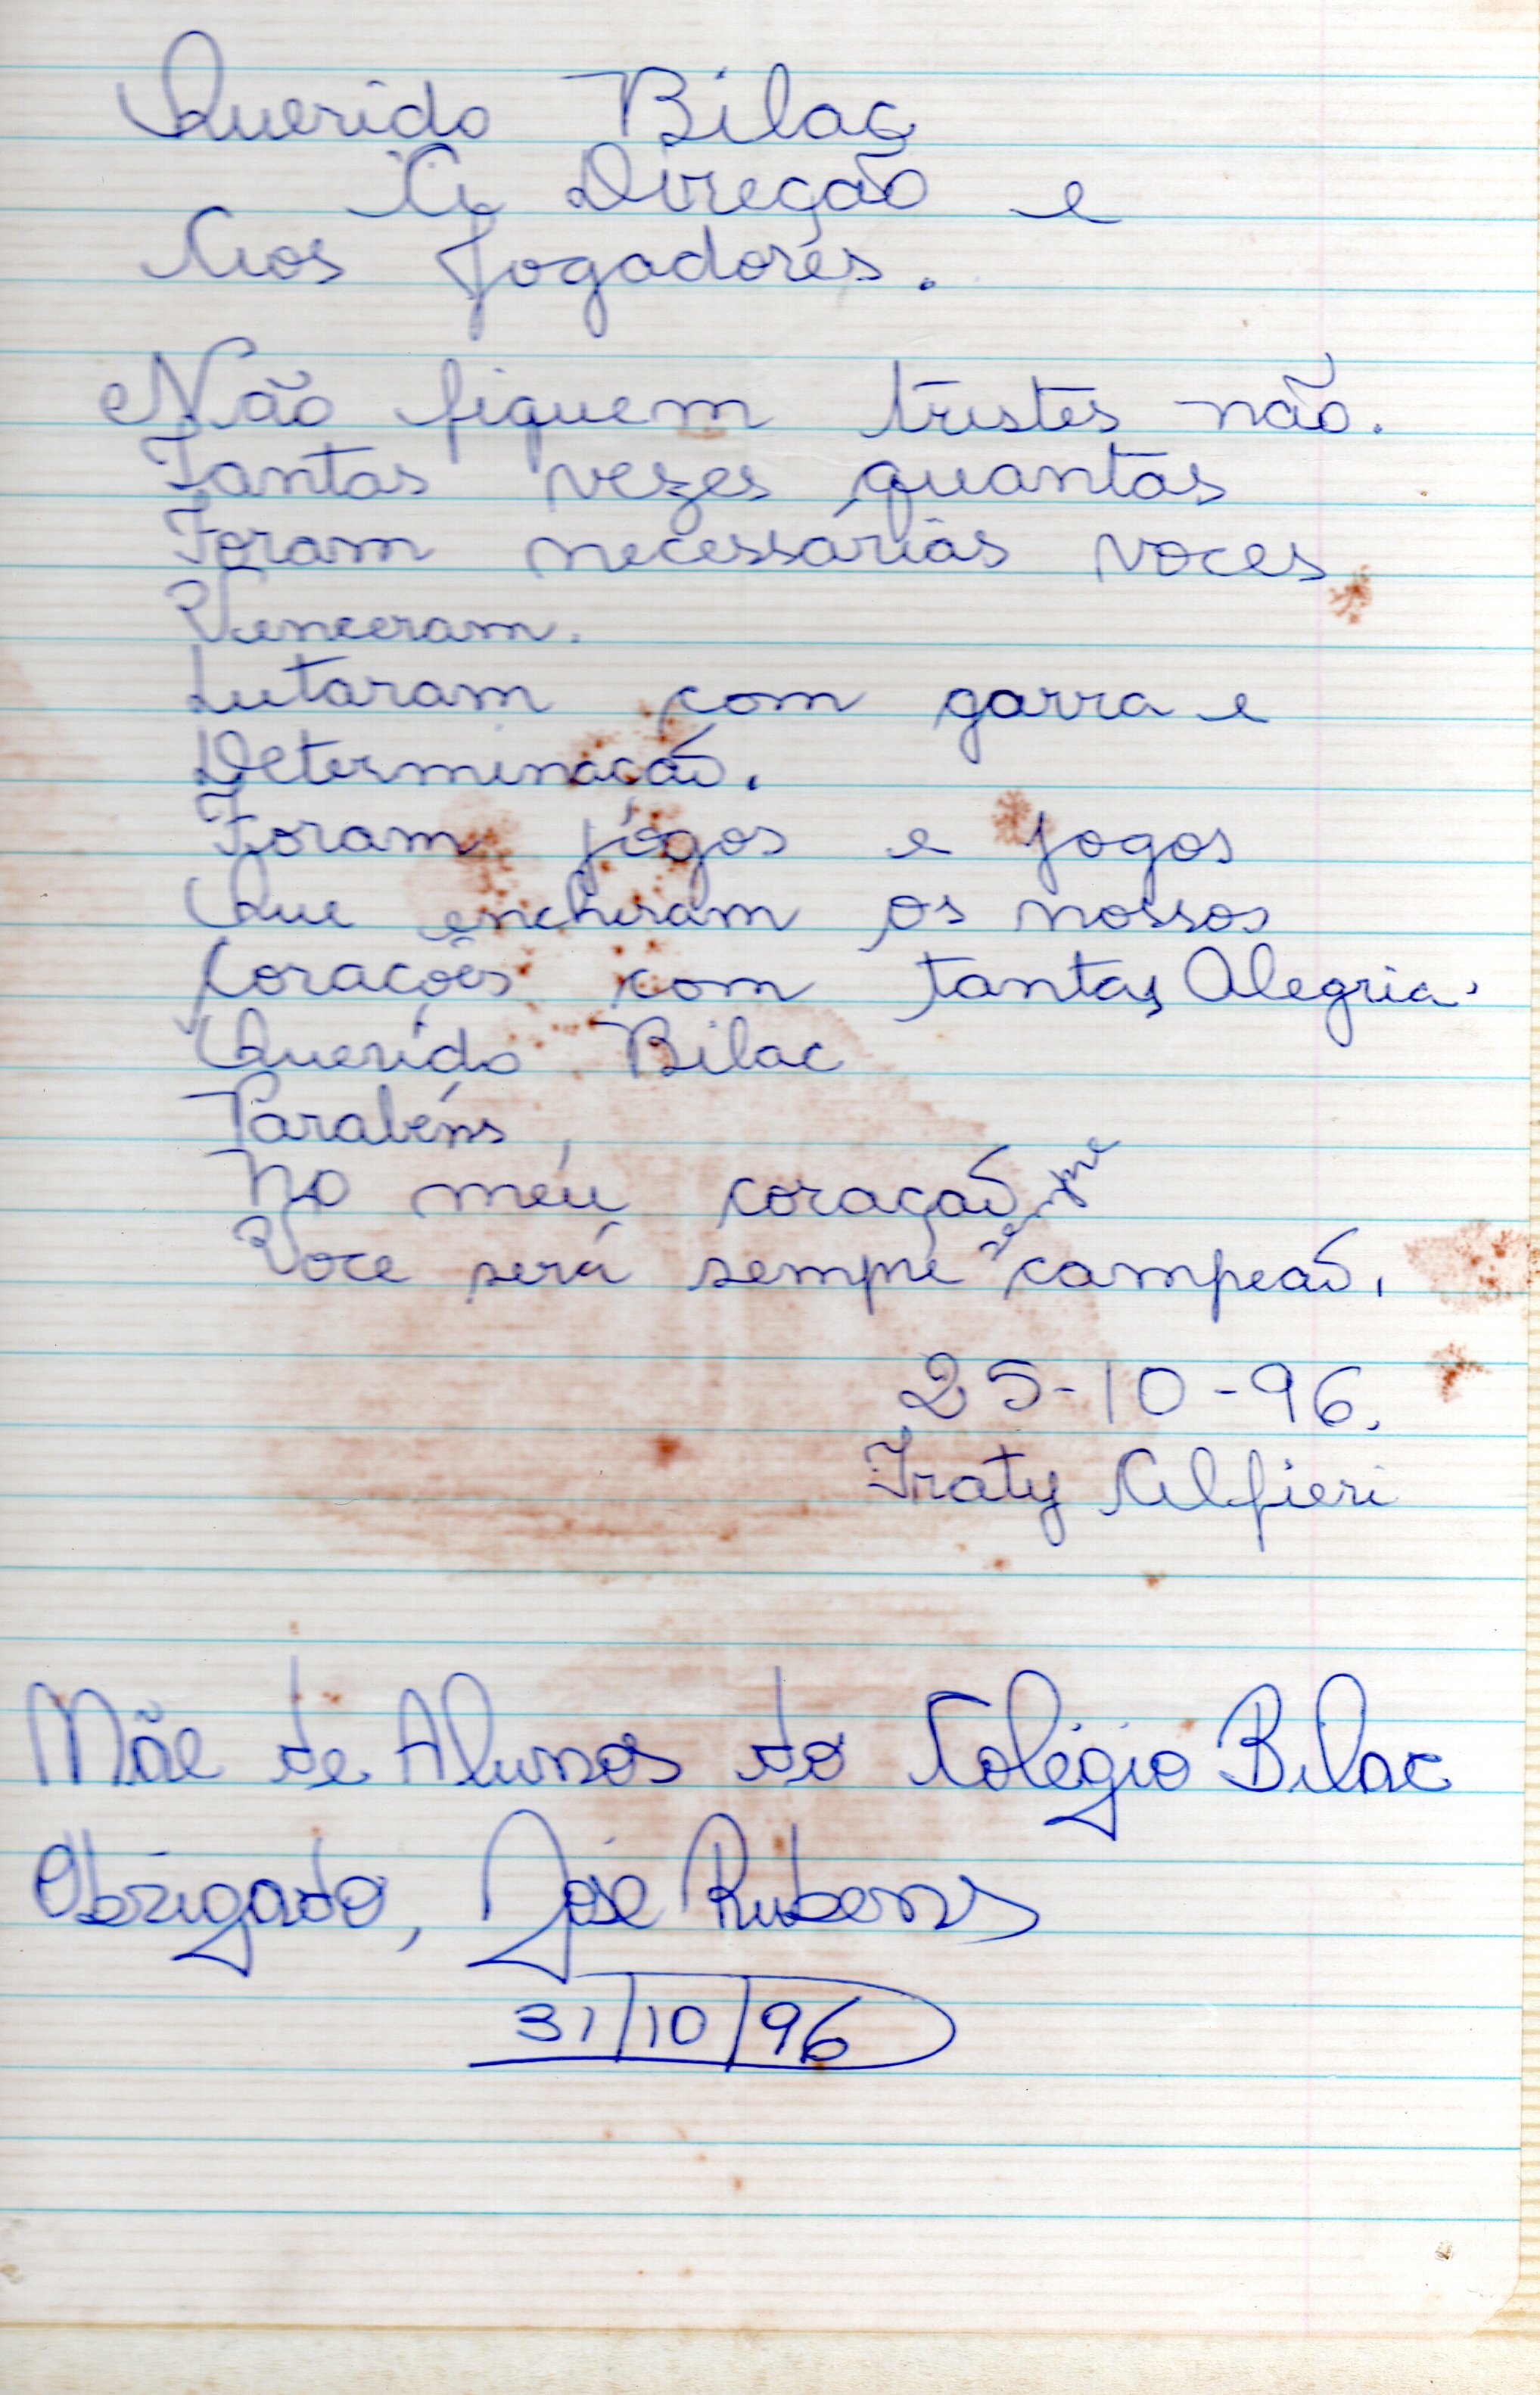 Querido Bilac
A Direção e
Aos Jogadores.
Não fiquem tristes não.
Tantas vezes quantas
Foram necessárias voces
Venceram.
Lutaram com garra e
Determinação.
Foram jogos e jogos
Que encheram os nossos
corações com tantas Alegria.
Querido Bilac
Parabéns,
No meu coração
sempre
Voce será sempre campeão.
25-10-96.
Iraty Alfieri
Mãe de Alunos do Colégio Bilac
Obrigado, José Rubens
31/10/96